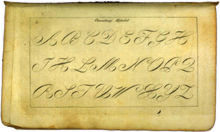 Ornamental Alphabet
A B C D E F G H
I K L M N O P Q
R S T U V W X Y Z